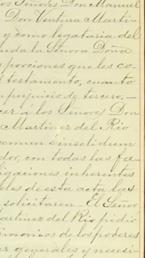 los Señores Don Manuel
Don Ventura Martin
y como legatario del
nda la Señora Doña
sporciones que les co
l testamento, cuanto
n perjuicio de tercero,—
cer á los Señores Don
Martinez del Rio
comun é insolidum
dor, con todas las fa
igaciones inherentes
les de esta acta las
solicitaren.—El Señor
artinez del Rio pidió
timonios de los poderes
er generales y necesi